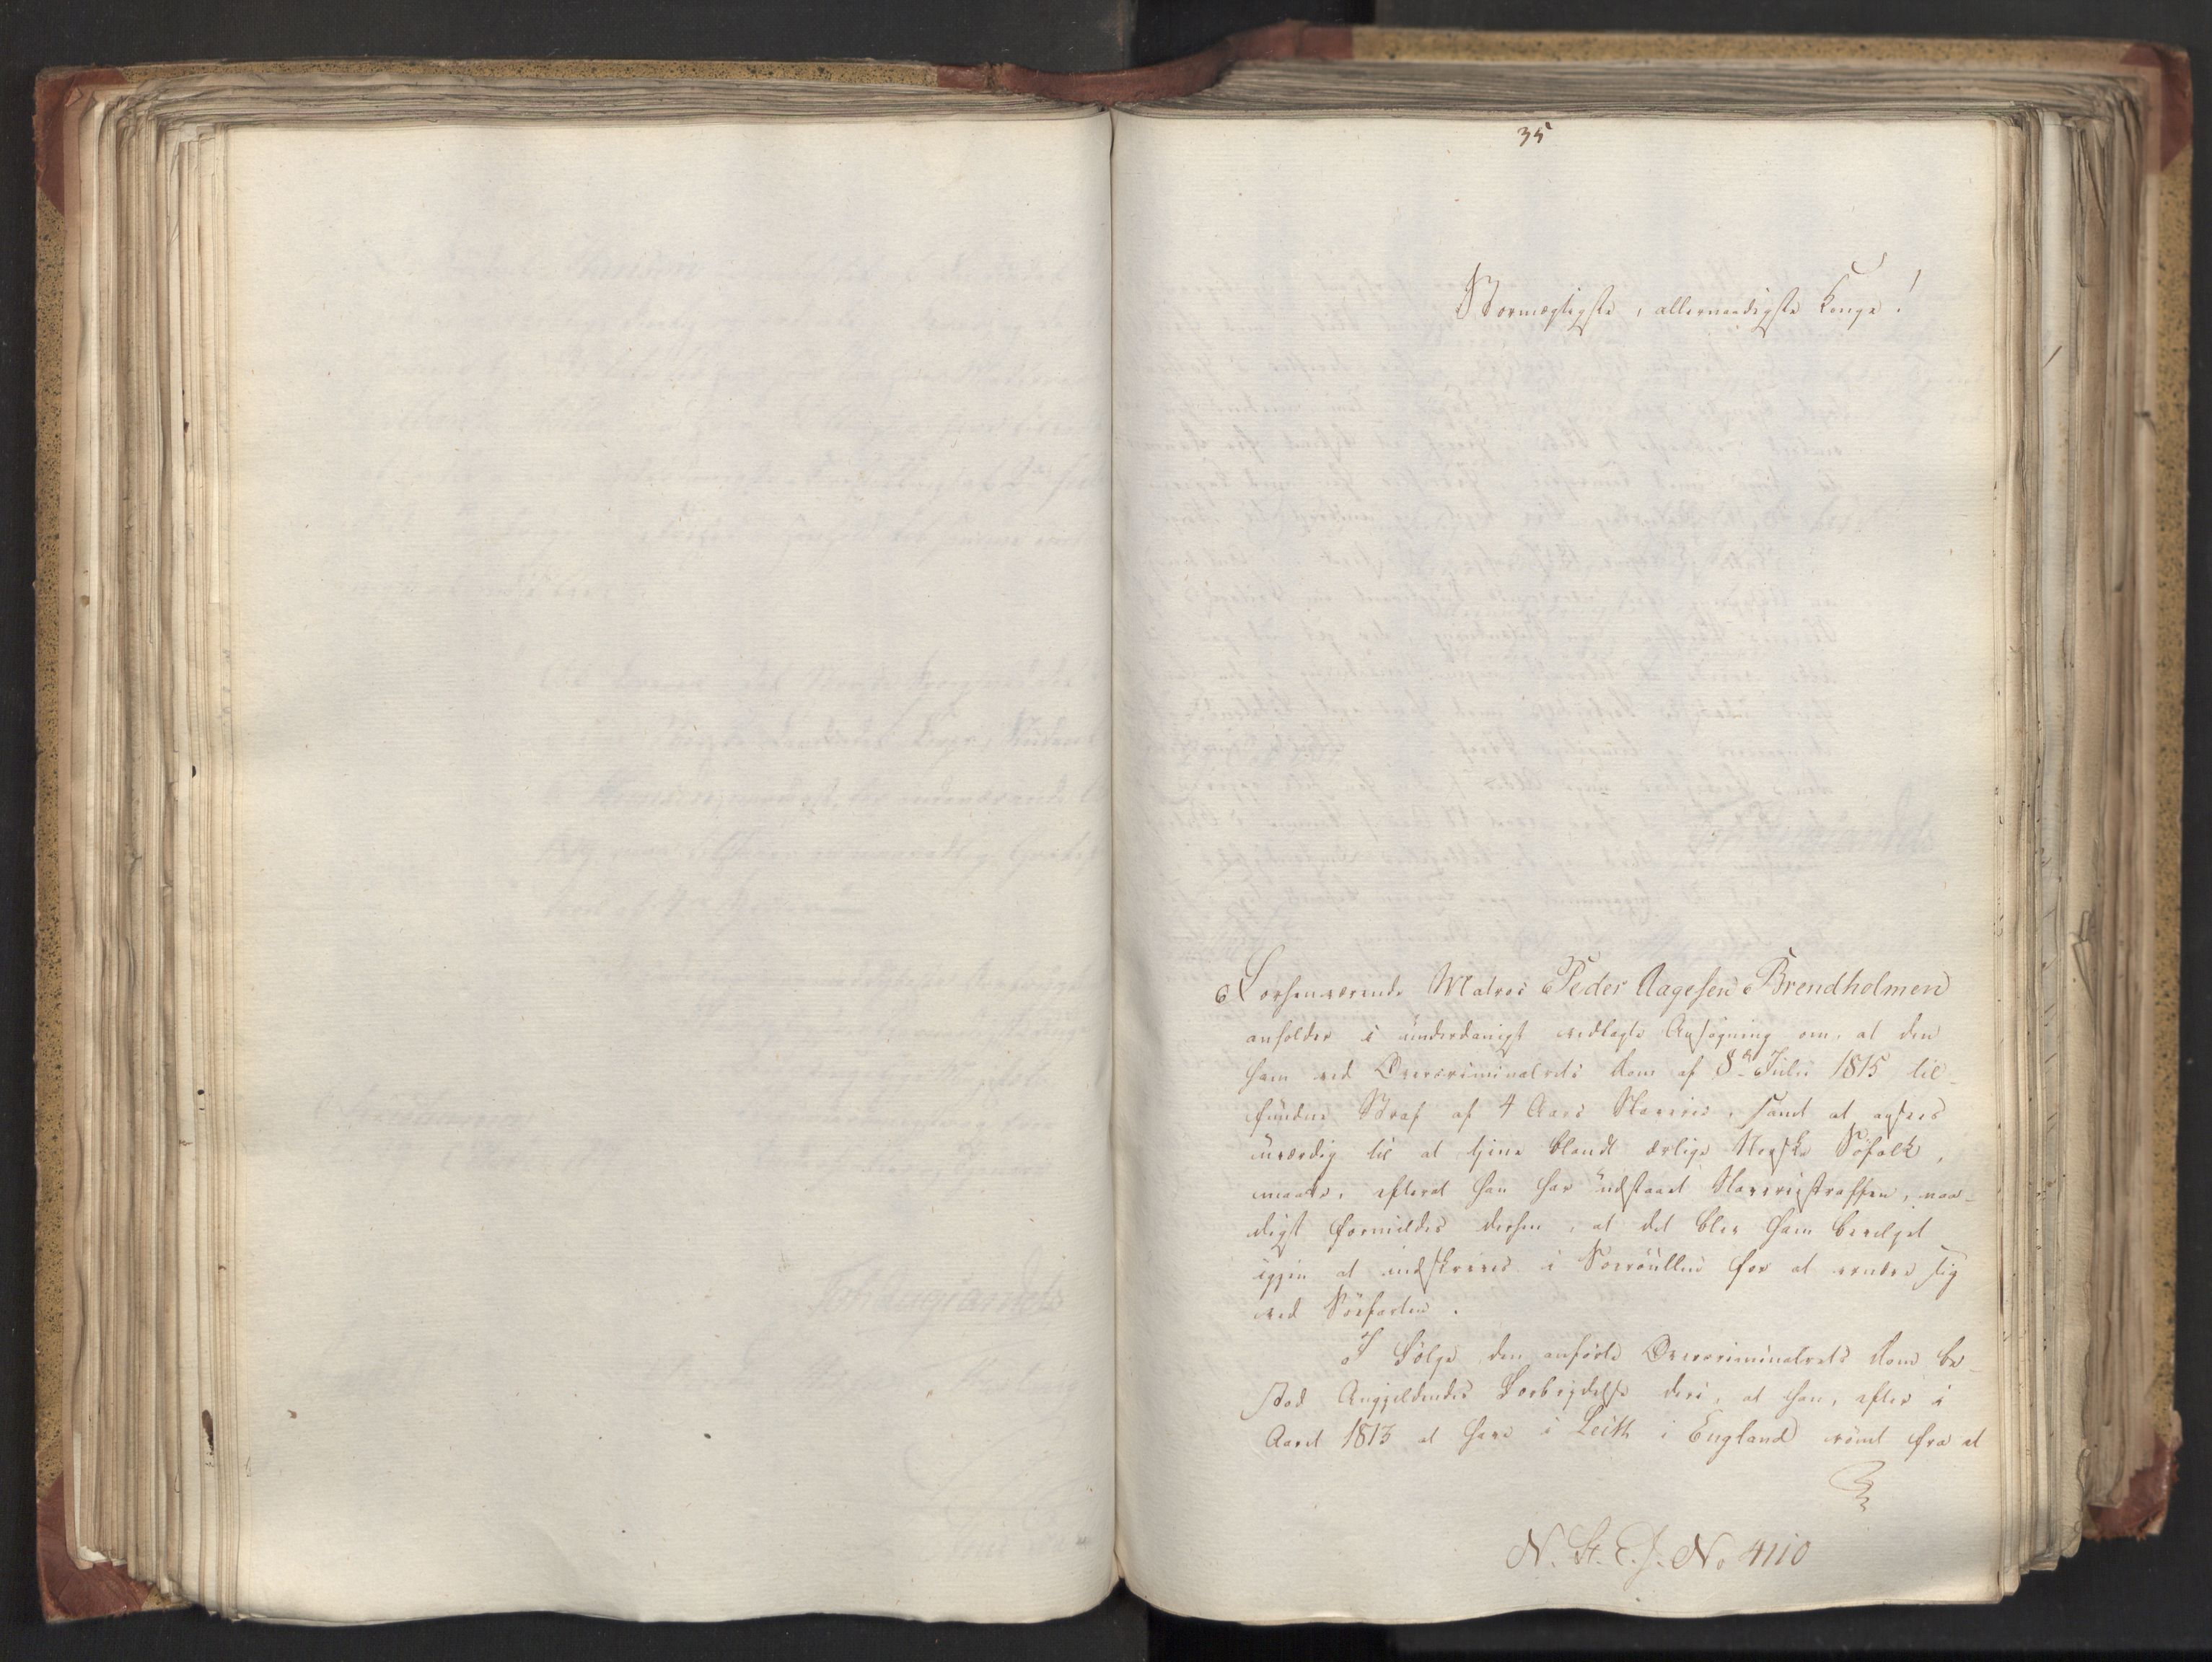 35
Stormægtigste, allernaadigste Konge!
Forhenværende Matros Peder Aagesen Brendholmen
anholder i underdanigst vedlagte Ansøgning om, at den
ham ved Overcriminalrets Dom af 8de Julii 1815 til-
fundne Straf af 4 Aars Slaverie, samt at agtes
uværdig til at tjene blandt ærlige Norske Søfolk,
maatte, efterat han har udstaaet Slaveriestraffen, naa-
digst formildes derhen, at det blev ham bevilget
igjen at indskrives i Søerullen for at ernære sig
ved Søefarten.
I Følge den anførte Overcriminalrets Dom be-
stod Angjeldendes Forbrydelse deri, at han, efter i
Aaret 1813 at have i Leith i England rømt fra et
N. St. C. J. No 4110